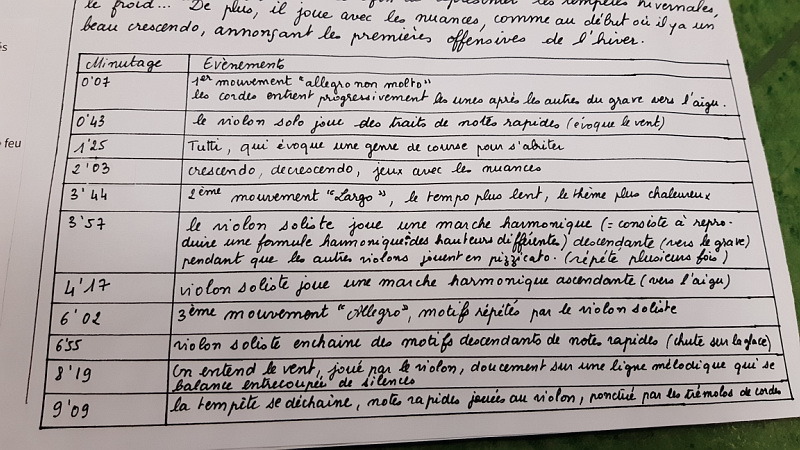 le froid... De plus, il joue avec les nuances, comme au début où il y a un
beau crescendo, annonçant les premières offensives de l'hiver.
és
e feu
Minutage Evènements
0'07 1er mouvement "allegro non molto"
les cordes entrent progressivement les unes après les autres du grave vers l'aigu.
0'43 le violon solo joue des traits de notes rapides (évoque le vent)
1'25 Tutti, qui évoque une genre de course pour s'abriter
2'03 crescendo, decrescendo, jeux avec les nuances
3'44 2ème mouvement "Largo", le tempo plus lent, le thème plus chaleureux
3'57 le violon soliste joue une marche harmonique (= consiste à repro-
duire une formule harmonique à des hauteurs différentes) descendante (vers le grave)
pendant que les autres violons jouent en pizzicato. (répète plusieurs fois)
4'17 violon soliste joue une marche harmonique ascendante (vers l'aigu)
6'02 3ème mouvement "Allegro", motifs répétés par le violon soliste
6'55 violon soliste enchaine des motifs descendants de notes rapides (chute sur la glace)
8'19 On entend le vent, joué par le violon, doucement sur une ligne mélodique qui se
balance entrecoupée de silences
9'09 la tempête se déchaine, notes rapides jouées au violon, ponctué par les trémolos de cordes